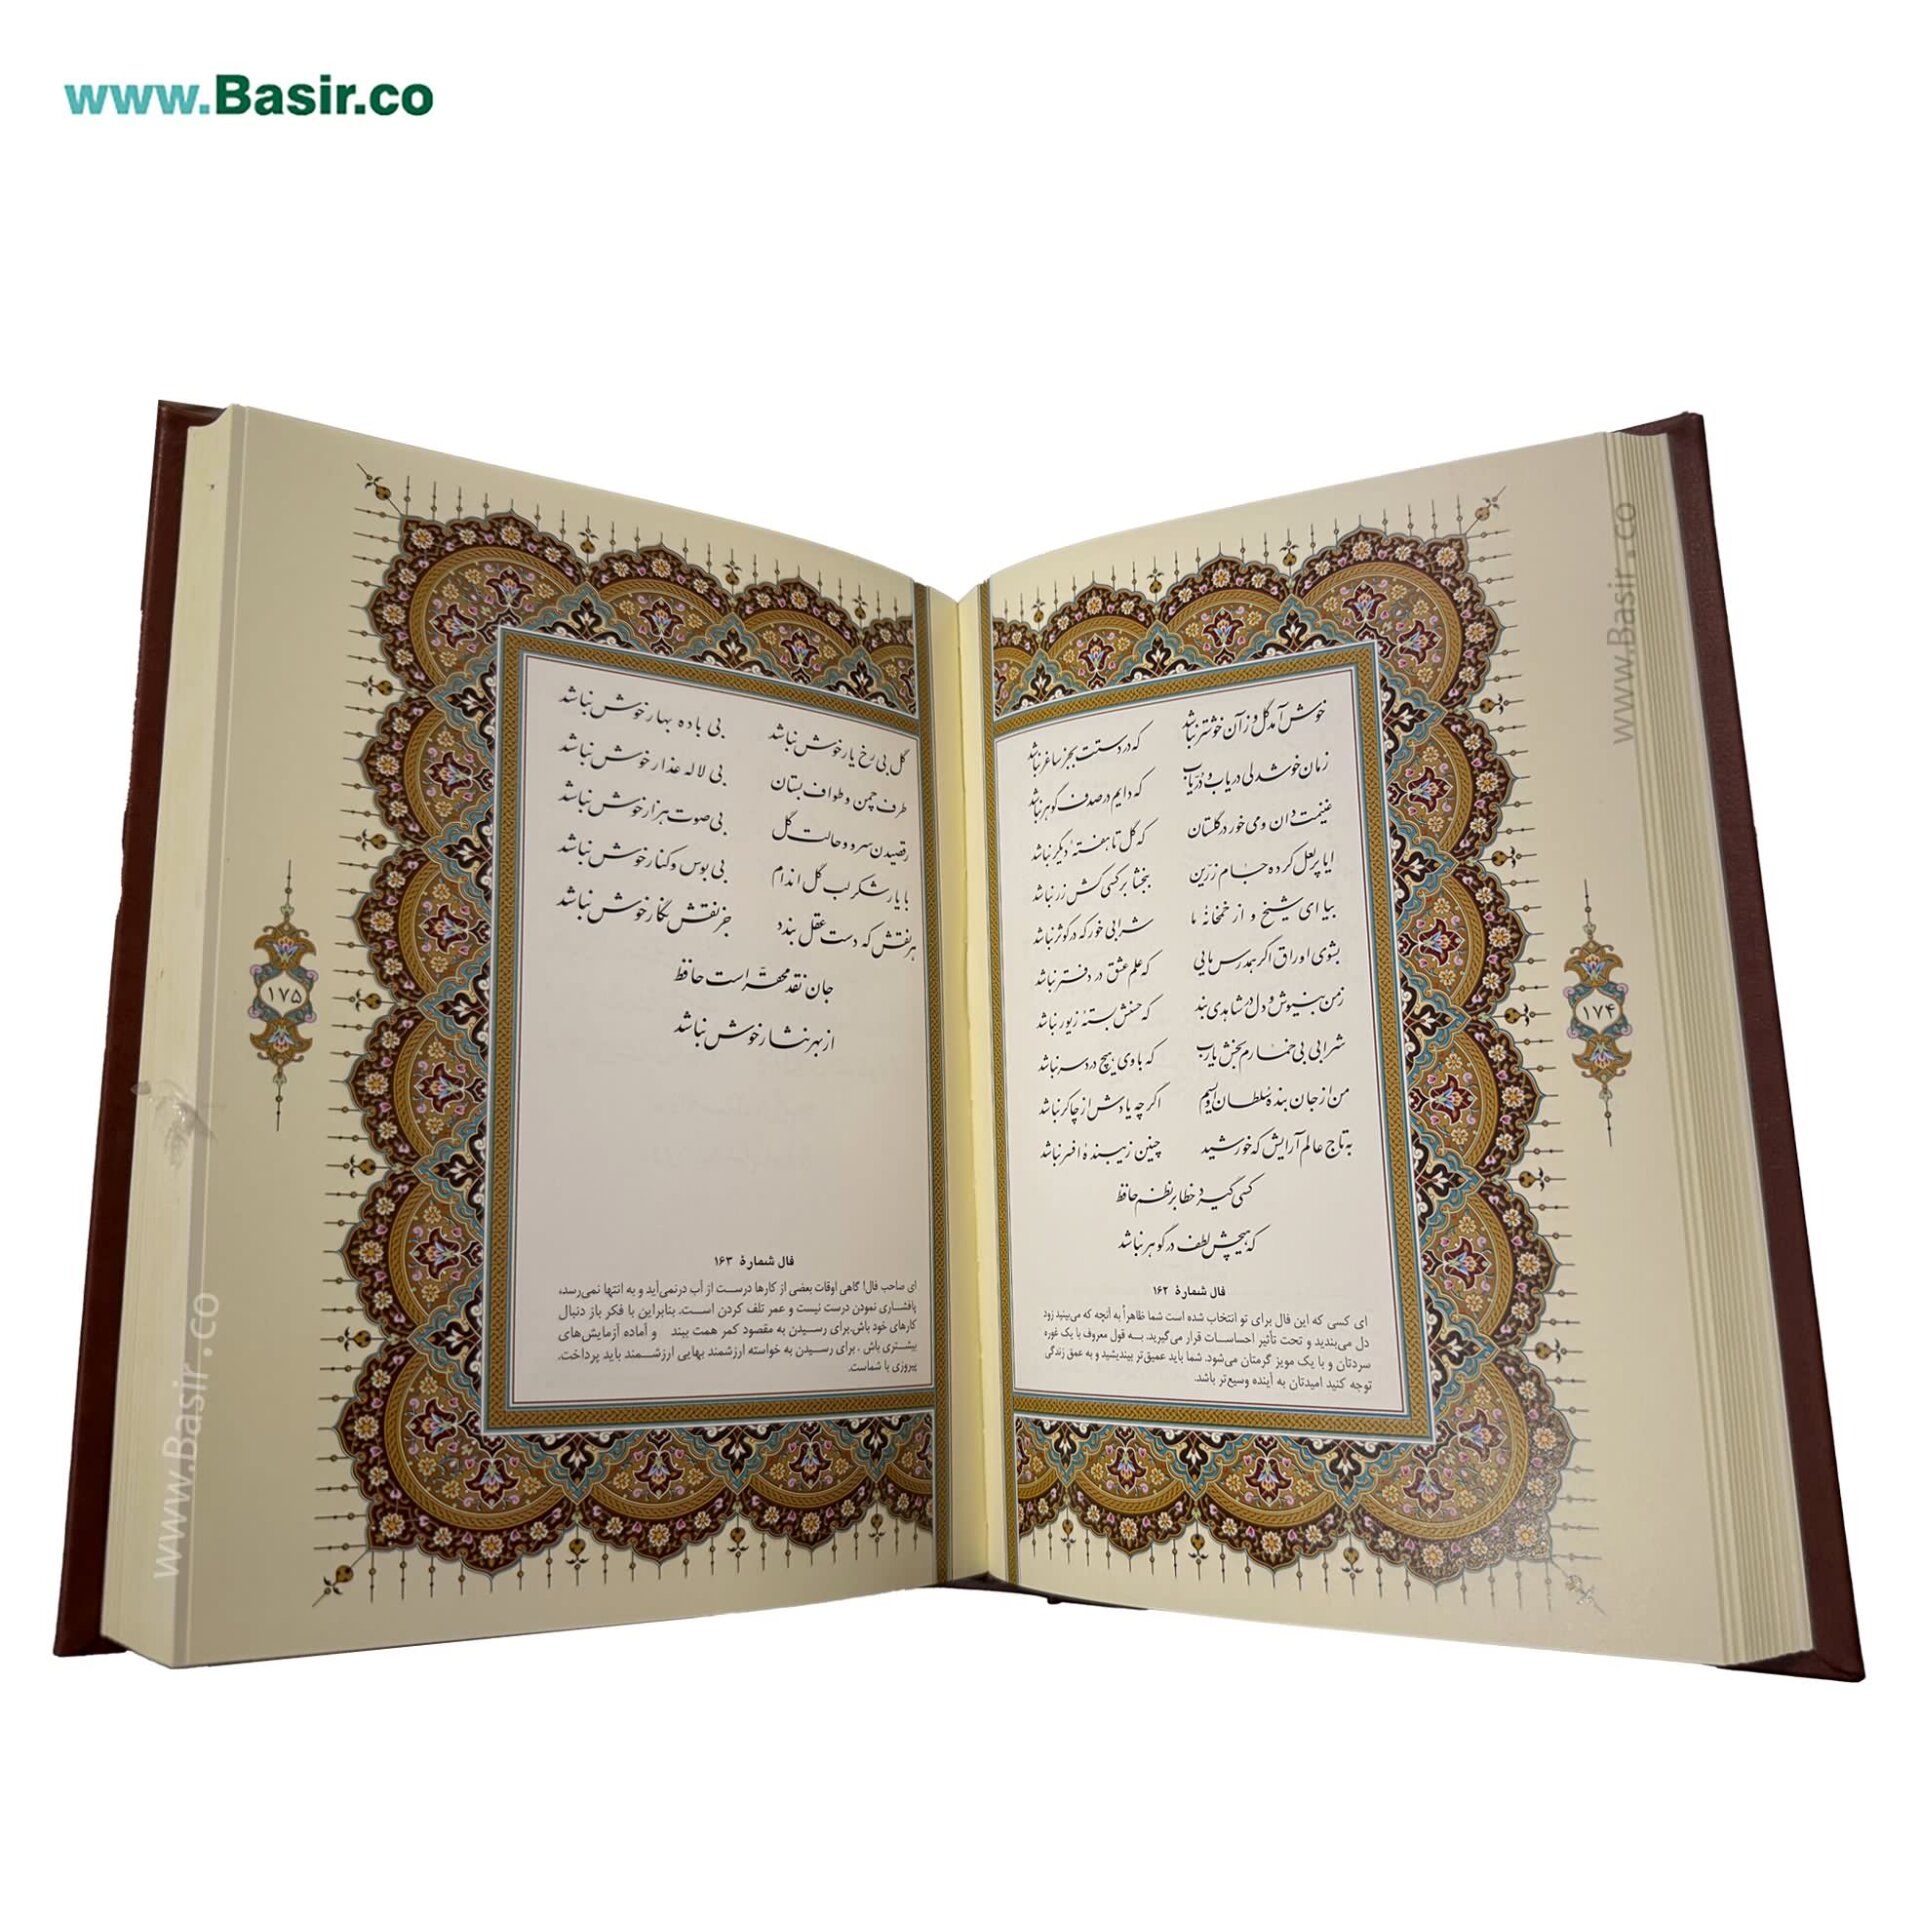 www.Basir.co
خوش آمد گل وز آن خوشتر نباشد که در دستت بجز ساغر نباشد
زمان خوشدلی دریاب و دریاب که دایم در صدف گوهر نباشد
غنیمت دان و می خور در گلستان که گل تا هفتهٔ دیگر نباشد
ایا پرلعل کرده جام زرین ببخشا بر کسی کش زر نباشد
بیا ای شیخ و از خمخانهٔ ما شرابی خور که در کوثر نباشد
بشوی اوراق اگر همدرس مایی که علم عشق در دفتر نباشد
زمن بنیوش و دل در شاهدی بند که حسنش بستهٔ زیور نباشد
شرابی بی خمارم بخش یارب که با وی هیچ دردسر نباشد
من از جان بنده سلطان اویسم اگرچه یادش از چاکر نباشد
به تاج عالم آرایش که خورشید چنین زیبندهٔ افسر نباشد
کسی گیرد خطا بر نظم حافظ
که هیچش لطف در گوهر نباشد
فال شمارهٔ ۱۶۲
ای کسی که این فال برای تو انتخاب شده است شما ظاهراً به آنچه که می‌بینید زود
دل می‌بندید و تحت تأثیر احساسات قرار می‌گیرید. به قول معروف با یک غوره
سردتان و با یک مویز گرمتان می‌شود. شما باید عمیق‌تر بیندیشید و به عمق زندگی
توجه کنید امیدتان به آینده وسیع‌تر باشد.
۱۷۴
www.Basir.co
گل بی رخ یار خوش نباشد بی باده بهار خوش نباشد
طرف چمن و طواف بستان بی لاله عذار خوش نباشد
رقصیدن سرو و حالت گل بی صوت هزار خوش نباشد
با یار شکر لب گل اندام بی بوس و کنار خوش نباشد
هر نقش که دست عقل بندد جز نقش نگار خوش نباشد
جان نقد محقّر است حافظ
از بهر نثار خوش نباشد
فال شمارهٔ ۱۶۳
ای صاحب فال! گاهی اوقات بعضی از کارها درست از آب درنمی‌آید و به انتها نمی‌رسد،
پافشاری نمودن درست نیست و عمر تلف کردن است. بنابراین با فکر باز دنبال
کارهای خود باش.برای رسیدن به مقصود کمر همت ببند و آماده آزمایش‌های
بیشتری باش . برای رسیدن به خواسته ارزشمند بهایی ارزشمند باید پرداخت.
پیروزی با شماست.
۱۷۵
www.Basir.co